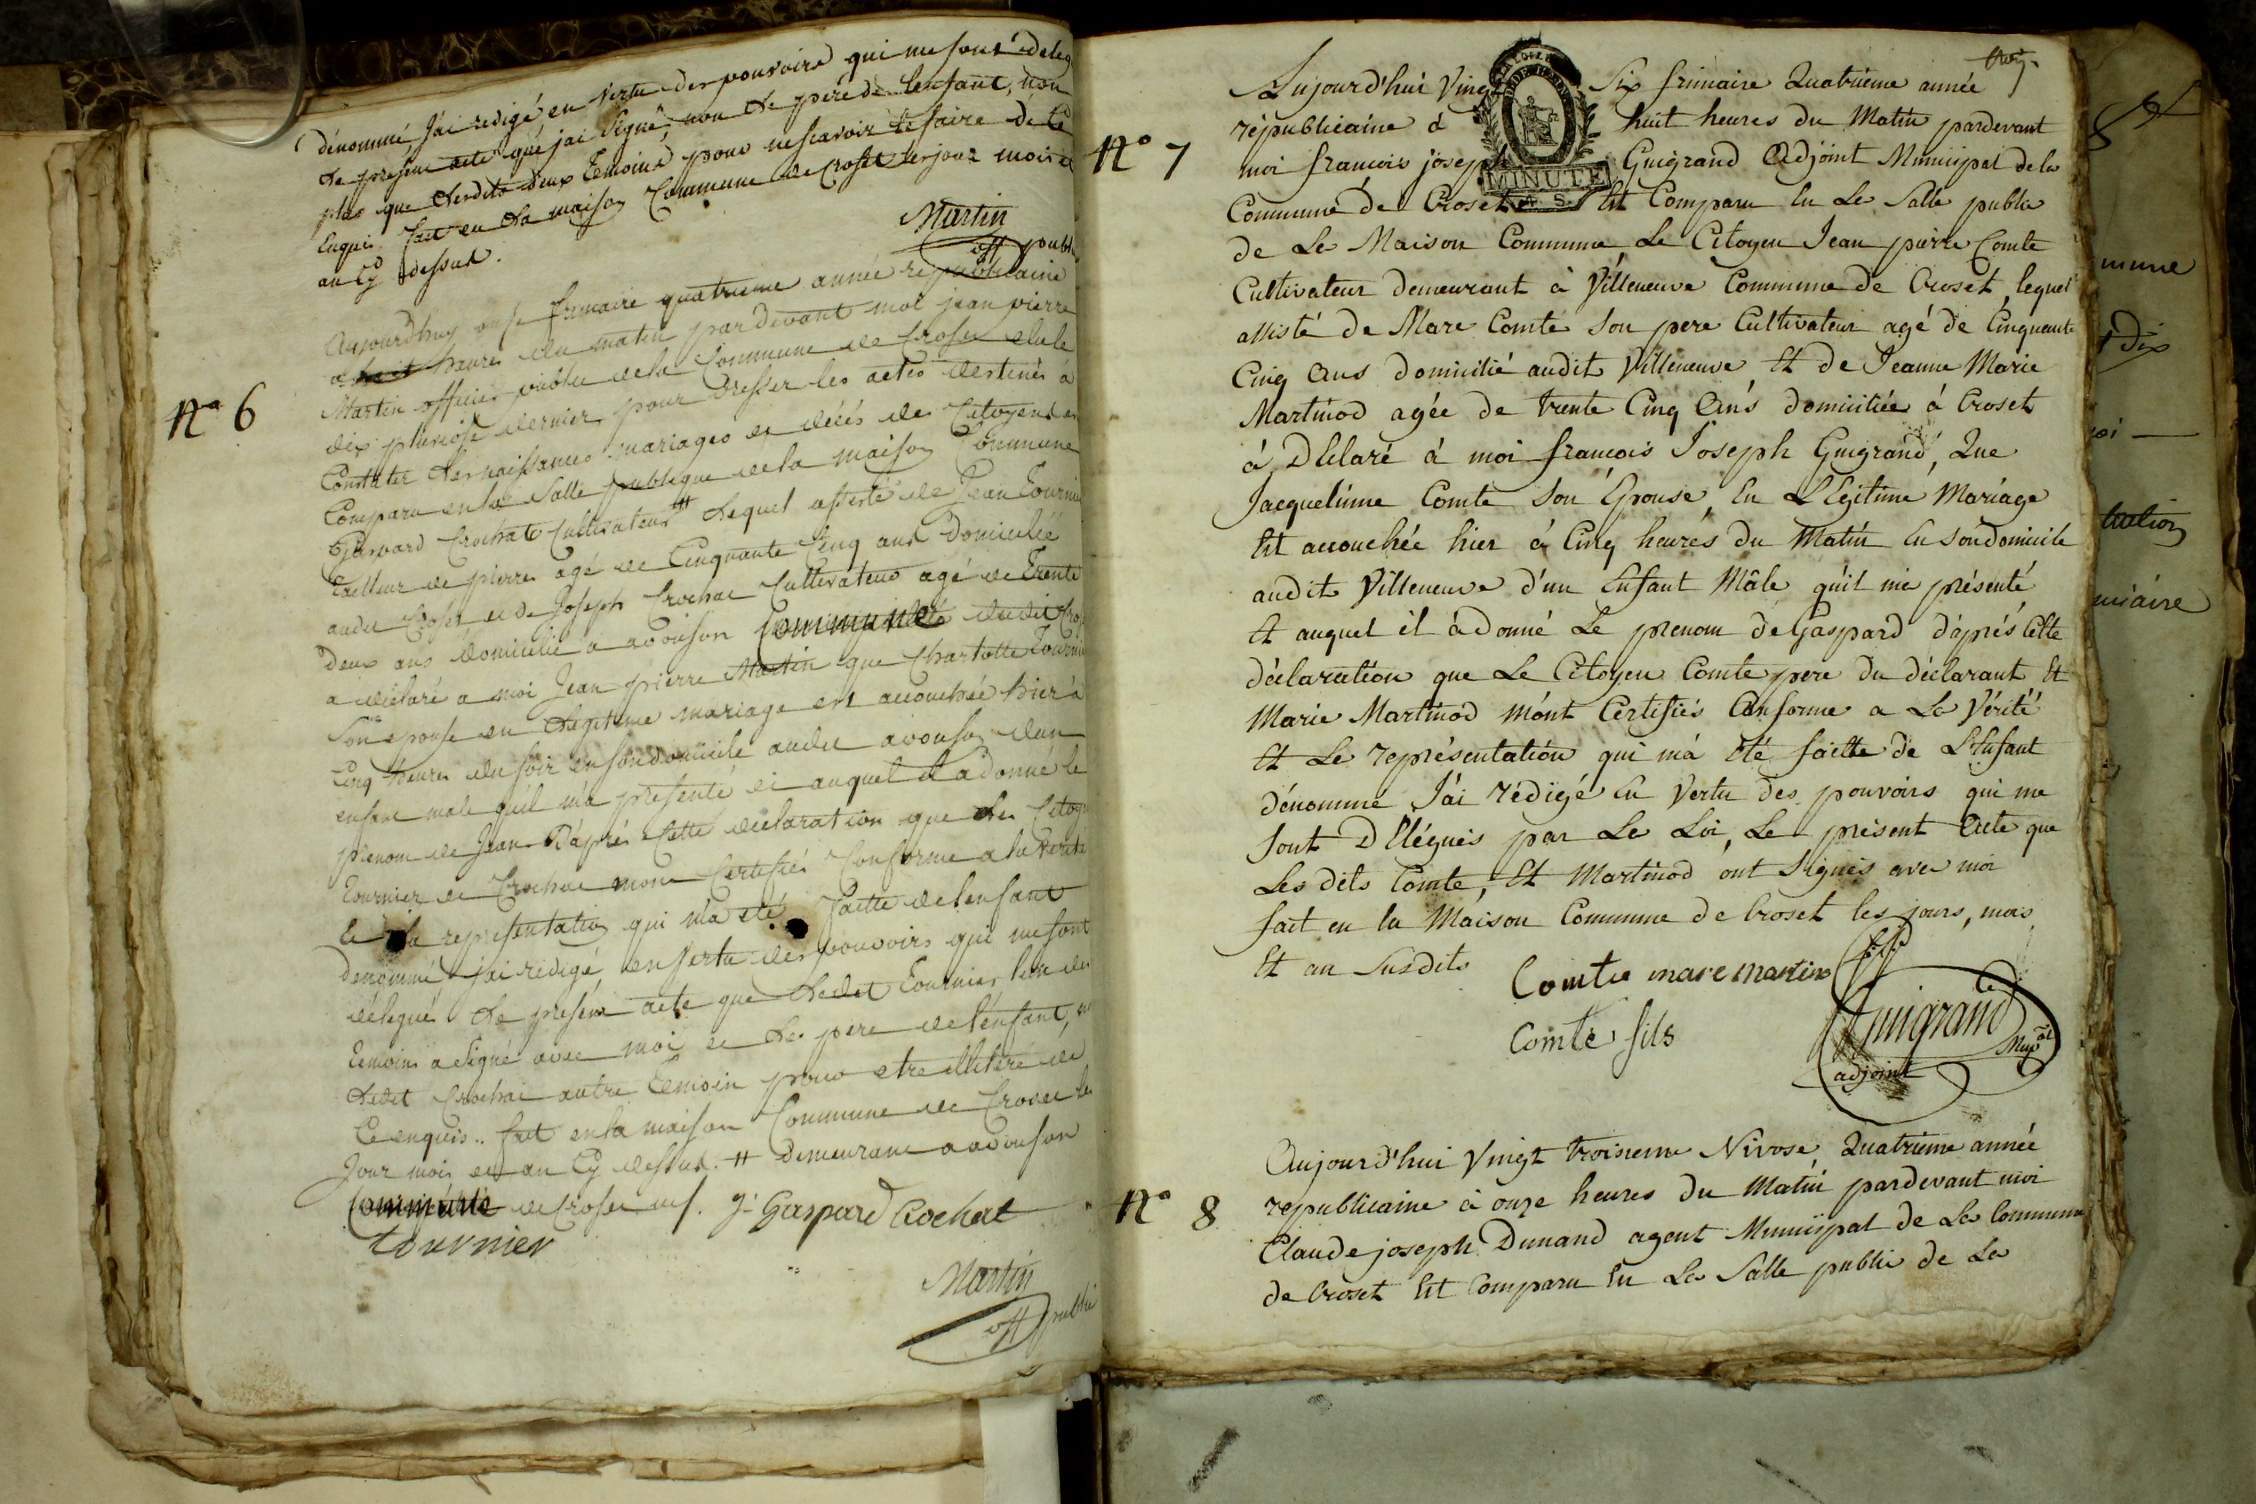 dénommé, J'ai redigé en vertu des pouvoirs qui me sont deleg
Le present acte que j'ai signé, non Le pere de Lenfant, non
plus que Lesdits deux temoins pour ne scavoir Le faire de ce
Enquis fait en La maison Commune de Croset les jour mois et
an Cy dessus.
Martin
off publi
N° 6
Aujourd'huy onze frimaire quatrieme année republicaine
a huit heures du matin par devant moi jean pierre
Martin officier public de la Commune de Croset elu le
dix pluviose dernier pour dresser les actes destinés a
Constater Les naissances mariages et décés des Citoyens est
Comparu en la Salle publique de la maison Commune
Gaspard Crochat Cultivateur # Lequel assisté de Jean Tournier
Tailleur de pierre agé de Cinquante Cinq ans domicilié
audit Croset et de Joseph Crochat Cultivateur agé de Trente
Deux ans domicilié a avouson Commune dudit Cro
a déclaré a moi Jean pierre Martin que Charlotte Tourni
Son epouse en Legitime mariage est accouchée hier a
Cinq heures du soir en son domicile audit avouson d'un
enfant male qu'il m'a presenté et auquel il a donné le
prenom de Jean. D'aprés Cette déclaration que Les Citoy
Tournier et Crochat m'ont Certifiés Conforme a la verité
et la representation qui m'a eté faitte de l'enfant
denommé j'ai redigé en vertu des pouvoirs qui me sont
délegués Le present acte que Ledit Tournier l'un des
temoins a signé avec moi et Le pere de l'enfant, n
Ledit Crochat autre temoin pour etre illiteré de
Ce enquis.. fait en la maison Commune de Croset les
Jour mois et an Cy dessus. # Demeurant a avouson
Commune de Croset
J. Gaspard Crochat
tournier
Martin
off publi
N° 7
Aujourd'hui Vingt Six frimaire Quatrieme année
républicaine à huit heures du Matin pardevant
moi françois joseph Guigrand Adjoint Municipal de la
MINUTE
Commune de Croset Est Comparu En La Salle public
de La Maison Commune Le Citoyen Jean pierre Comte
Cultivateur demeurant à Villeneuve Commune de Croset, lequel
assisté de Marc Comte Son pere Cultivateur agé de Cinquante
Cinq Ans domicilié audit Villeneuve Et de Jeanne Marie
Martinod agée de trente Cinq Ans domiciliée à Croset
à Déclaré à moi françois Joseph Guigrand, Que
Jacquelinne Comte Son Épouse, En LÉgitime Mariage
Est accouchée hier à Cinq heures du Matin En son domicile
audit Villeneuve d'un Enfant Mâle qu'il m'a présenté
Et auquel il à donné Le prenom de Gaspard d'aprés Cette
déclaration que Le Citoyen Comte pere du déclarant Et
Marie Martinod m'ont Certifiés Conforme a La Vérité
Et La représentation qui m'a Eté faitte de L'Enfant
dénommé J'ai rédigé En Vertu des pouvoirs qui me
Sont DÉlégués par La Loi, Le présent Acte que
Les dits Comte, Et Martinod ont Signés avec moi
fait en la Maison Commune de Croset les jours, mois
Et an Susdits
Comte marc martino
Comte fils
Guigrand
adjoint
N° 8
Aujourd'hui Vingt troisieme Nivose Quatrieme année
republicaine à onze heures du Matin pardevant moi
Claude joseph Dunand agent Municipal de La Commune
de Croset Est Comparu En La Salle public de La
mune
dix
niaire